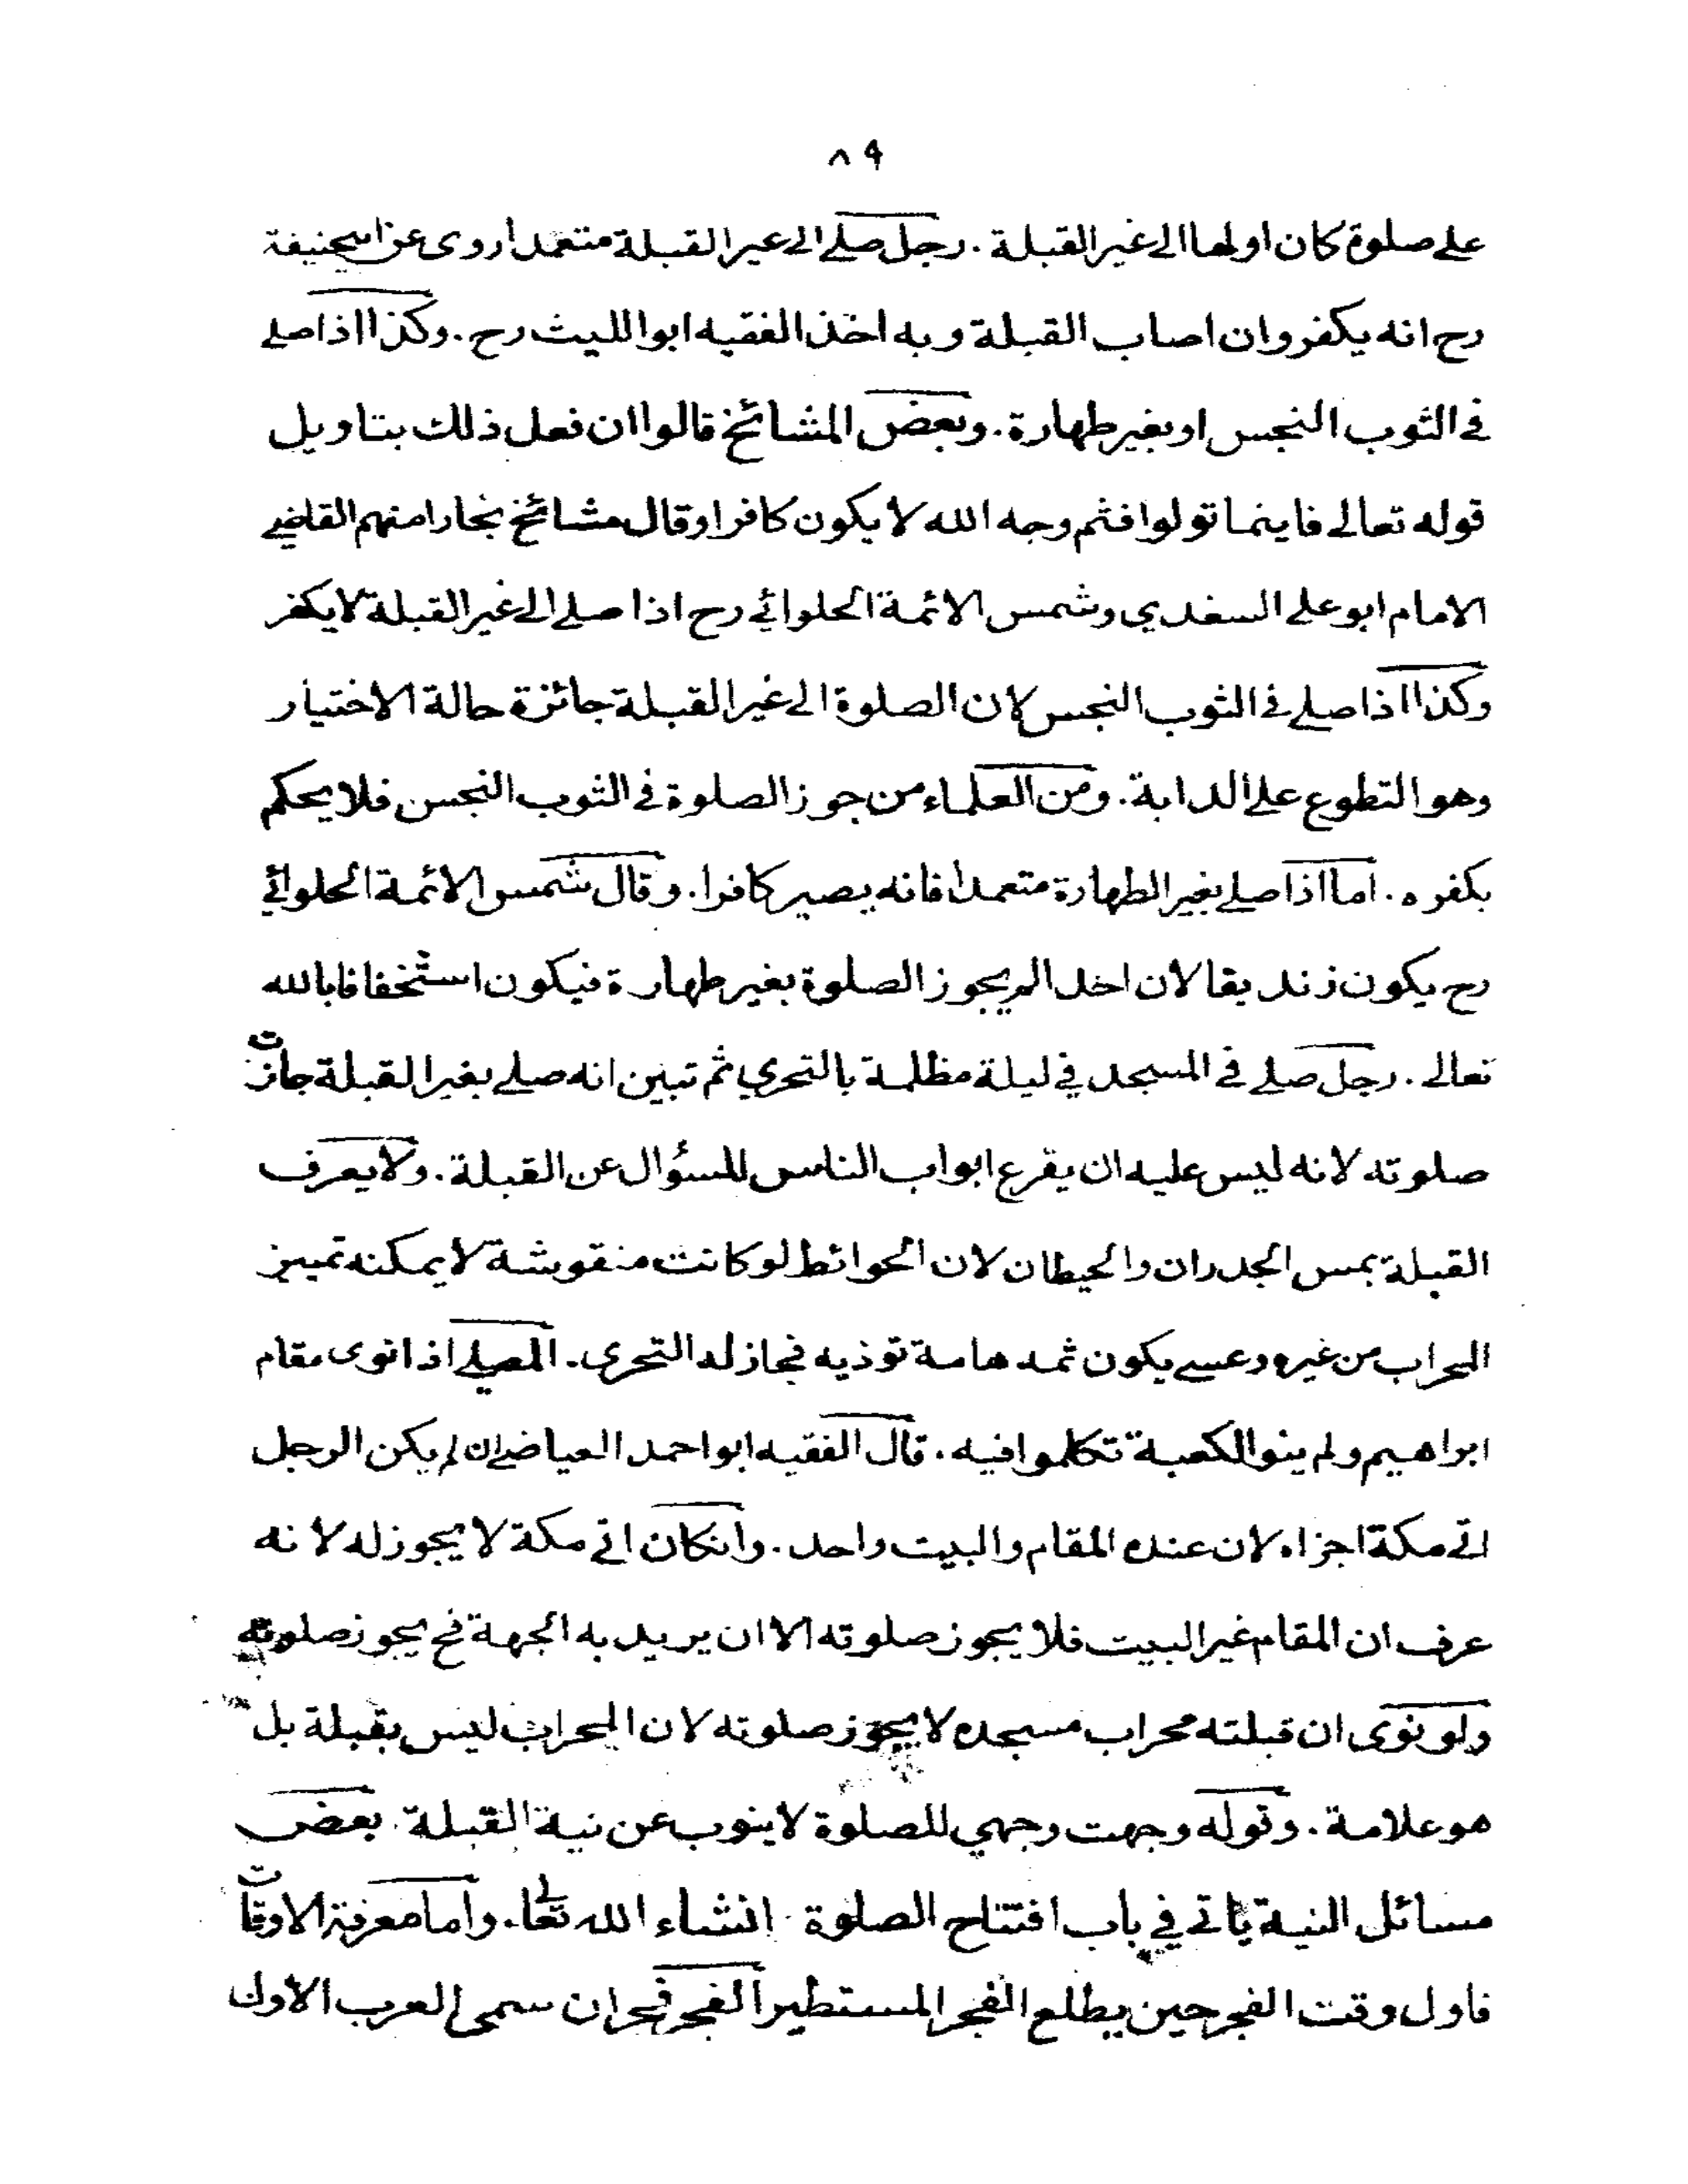 ٨٩
على صلوة كان اولها الى غير القبلة . رجل صلى الى غير القبلة متعمدا روى عن ابيحنيفة
رح انه يكفر وان اصاب القبلة وبه اخذ الفقيه ابوالليث رح . وكذا اذا صلى
فى الثوب النجس او بغير طهارة . وبعض المشائخ قالوا ان فعل ذلك بتاويل
قوله تعالى فاينما تولوا فثم وجه الله لا يكون كافرا وقال مشائخ بخارا منهم القاضى
الامام ابو على السغدي وشمس الائمة الحلوائي رح اذا صلى الى غير القبلة لا يكفر
وكذا اذا صلى فى الثوب النجس لان الصلوة الى غير القبلة جائزة حالة الاختيار
وهو التطوع على الدابة . ومن العلماء من جوز الصلوة فى الثوب النجس فلا يحكم
بكفره . اما اذا صلى بغير الطهارة متعمدا فانه يصير كافرا . وقال شمس الائمة الحلوائي
رح يكون زنديقا لان احدا لم يجوز الصلوة بغير طهارة فيكون استخفافا بالله
تعالى . رجل صلى فى المسجد في ليلة مظلمة بالتحري ثم تبين انه صلى بغير القبلة جازت
صلوته لانه ليس عليه ان يقرع ابواب الناس للسؤال عن القبلة . ولا يعرف
القبلة بمس الجدران والحيطان لان الحوائط لو كانت منقوشة لا يمكنه تمييز
المحراب من غيره وعسى يكون ثمه هامة توذيه فجاز له التحري . المصلى اذا نوى مقام
ابراهيم ولم ينو الكعبة تكلموا فيه . قال الفقيه ابو احمد العياضى ان لم يكن الرجل
اتى مكة اجزاه لان عنده المقام والبيت واحد . وانكان اتى مكة لا يجوز له لانه
عرف ان المقام غير البيت فلا يجوز صلوته الا ان يريد به الجهة فح يجوز صلوته
ولو نوى ان قبلته محراب مسجده لا يجوز صلوته لان المحراب ليس بقبلة بل
هو علامة . وقوله وجهت وجهي للصلوة لا ينوب عن نية القبلة . بعض
مسائل النية ياتى في باب افتتاح الصلوة انشاء الله تعالى . واما معرفة الاوقات
فاول وقت الفجر حين يطلع الفجر المستطير الفجر فجران سمى العرب الاول